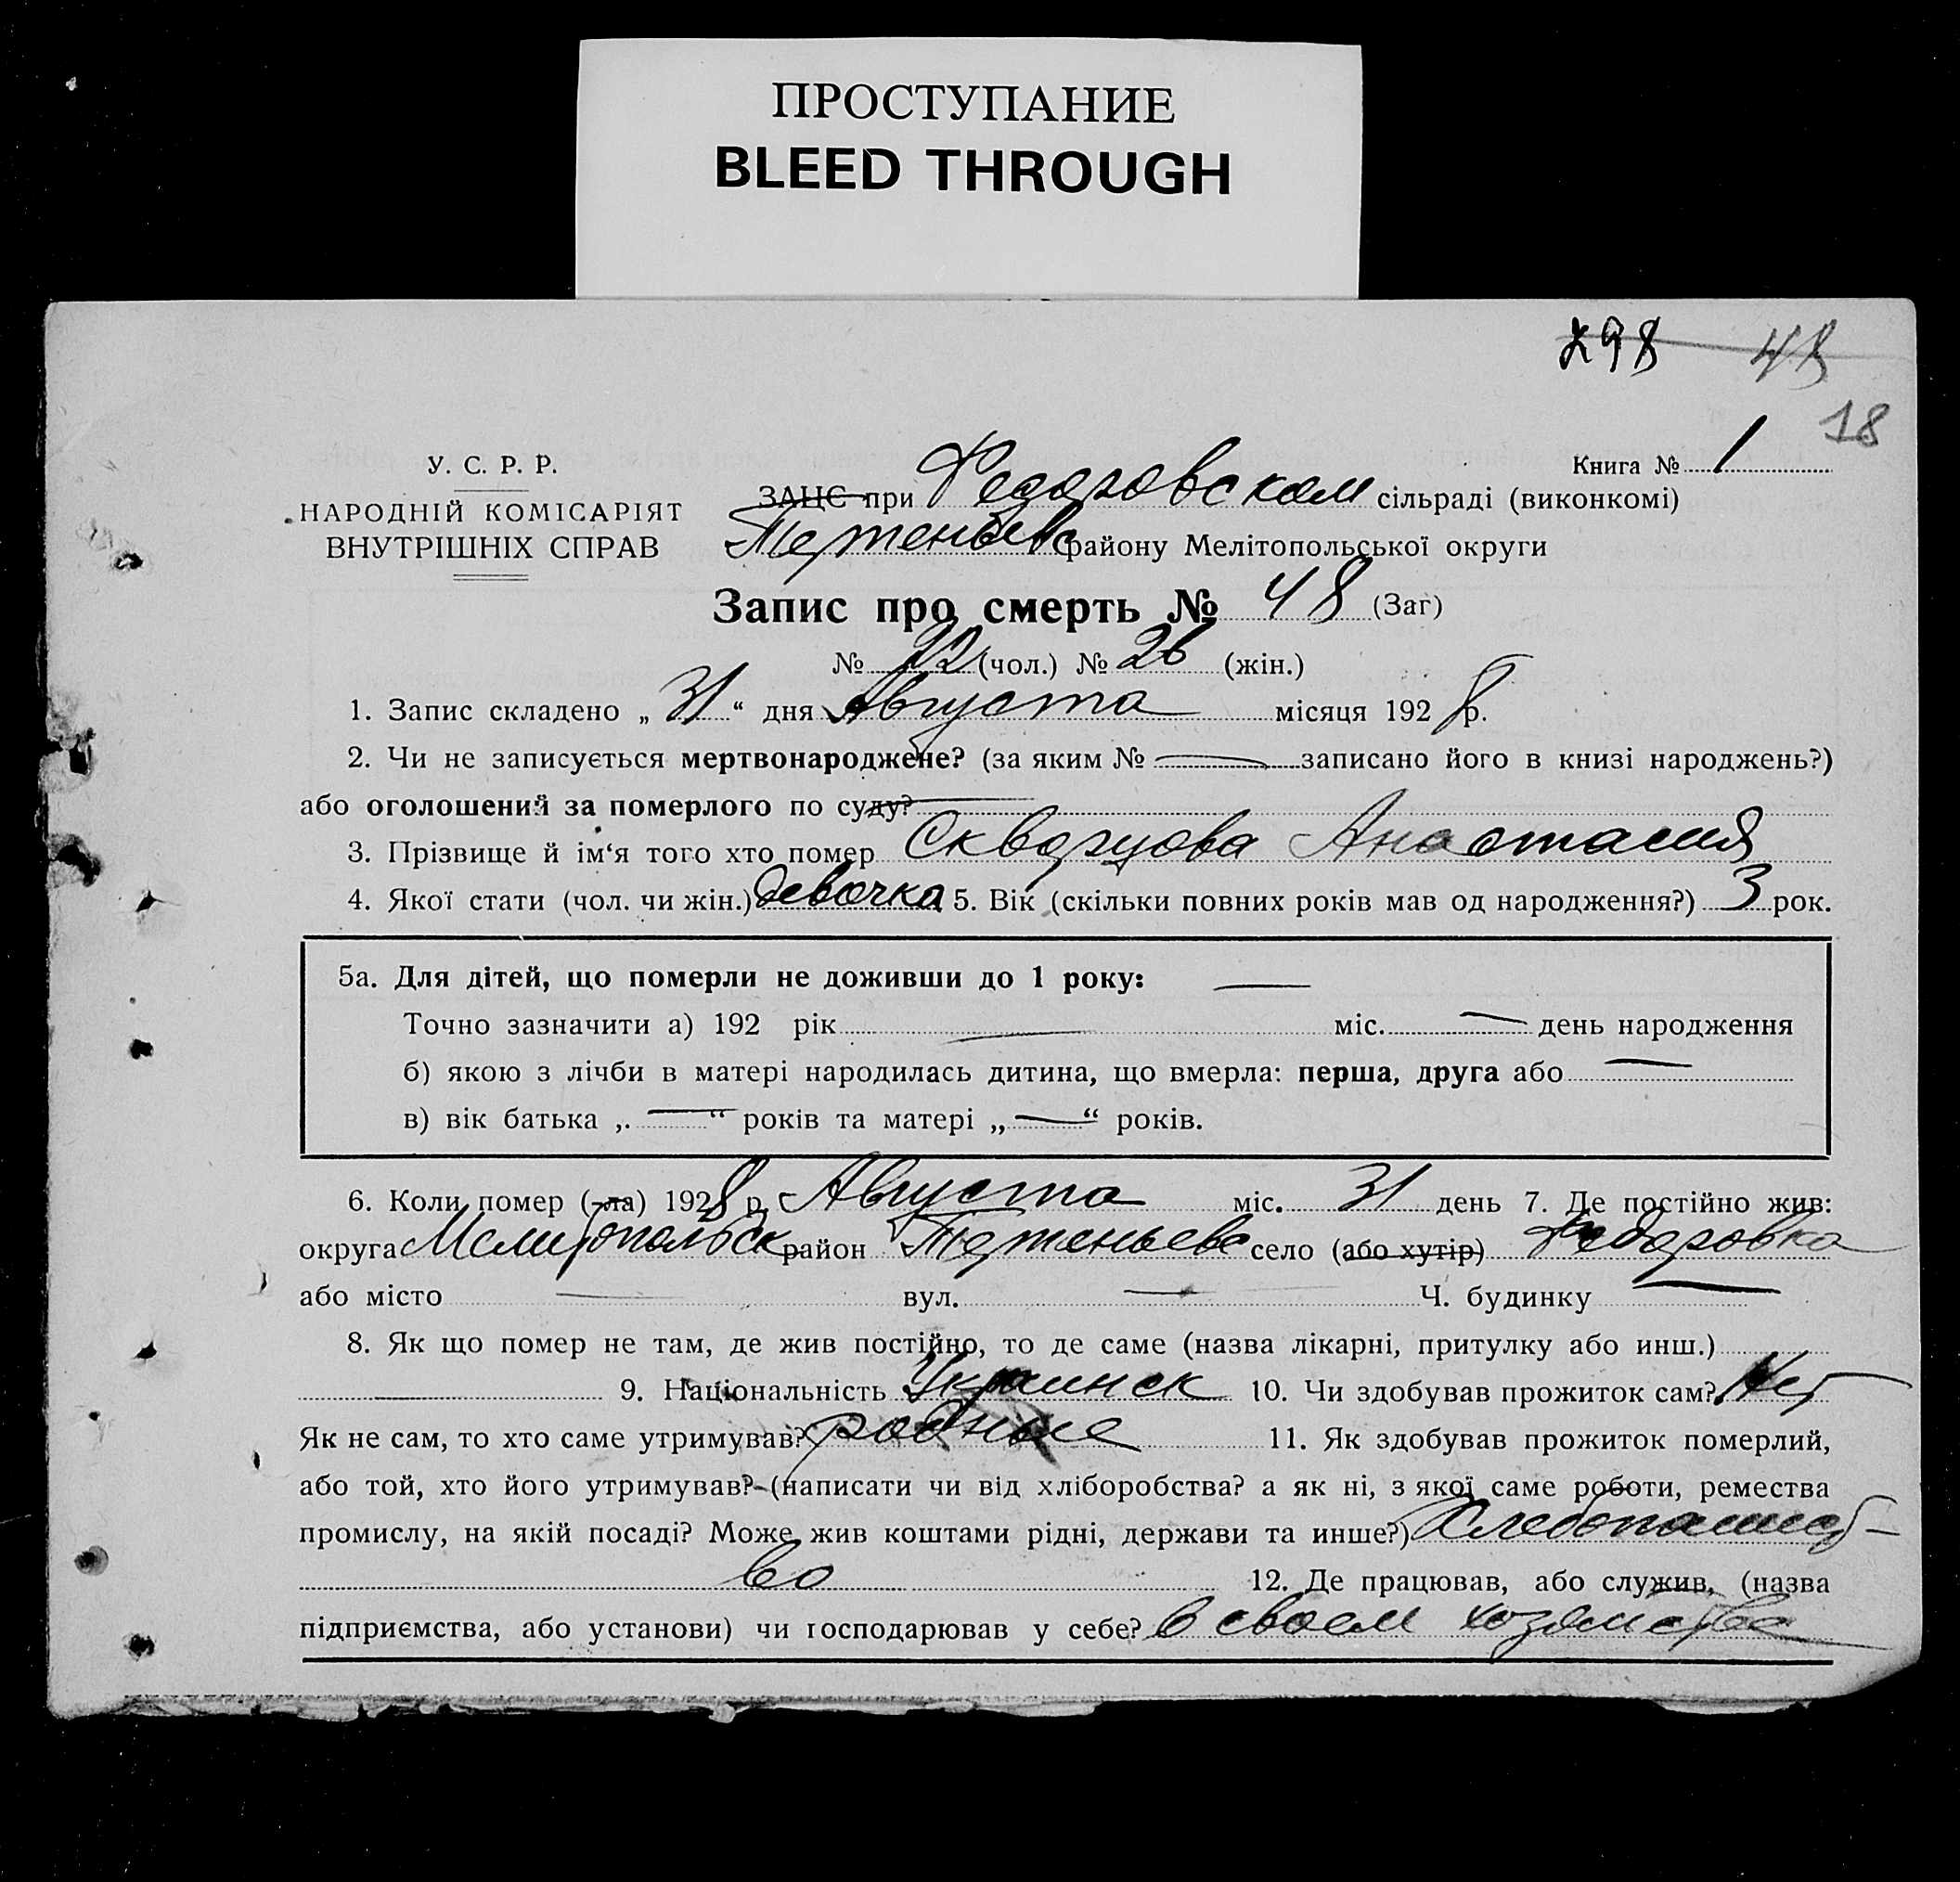 ПРОСТУПАНИЕ
BLEED THROUGH
298 48
18
У. С. Р. Р.
НАРОДНІЙ КОМІСАРІЯТ
ВНУТРІШНІХ СПРАВ
Книга № 1
ЗАЦС при Федоровском сільраді (виконкомі)
району Мелітопольської округи
Запис про смерть № 48 (Заг)
№ 22 (чол.) № 26 (жін.)
1. Запис складено „ 31 “ дня Августа місяця 1928 р.
2. Чи не записується мертвонароджене? (за яким № — записано його в книзі народжень?)
або оголошений за померлого по суду? —
3. Прізвище й ім‘я того хто помер Скворцова Анастасия
4. Якої стати (чол. чи жін.) девочка 5. Вік (скільки повних років мав од народження?) 3 рок.
5а. Для дітей, що померли не доживши до 1 року: —
Точно зазначити а) 192 рік — міс. — день народження
б) якою з лічби в матері народилась дитина, що вмерла: перша, друга або —
в) вік батька „ — “ років та матері „ — “ років.
6. Коли помер (-ла) 1928 р. Августа міс. 31 день 7. Де постійно жив:
округа Мелитопольск район село (або хутір) Федоровка
або місто — вул. — Ч. будинку —
8. Як що помер не там, де жив постійно, то де саме (назва лікарні, притулку або инш.)
— 9. Національність Украинск 10. Чи здобував прожиток сам? Нет
Як не сам, то хто саме утримував? родные 11. Як здобував прожиток померлий,
або той, хто його утримував? (написати чи від хліборобства? а як ні, з якої саме роботи, ремества
промислу, на якій посаді? Може жив коштами рідні, держави та инше?) Хлебопашест-
во 12. Де працював, або служив, (назва
підприємства, або установи) чи господарював у себе? в своем хозяйстве